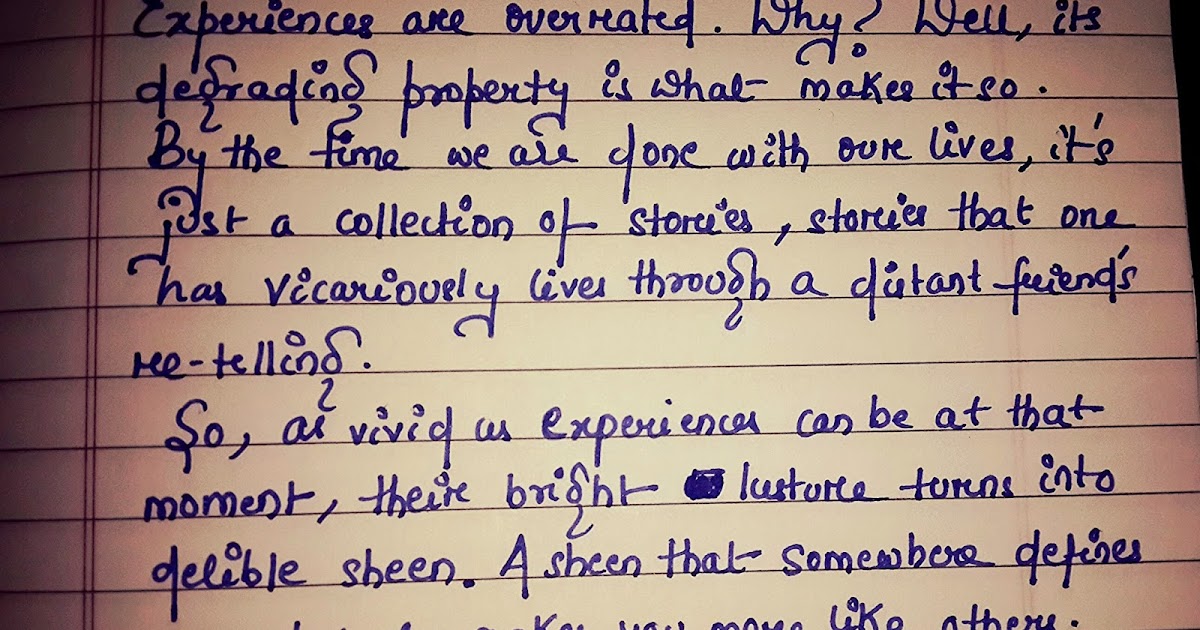 Experiences are overrated. Why? Well, its
degrading property is what makes it so.
By the time we are done with our lives, it's
just a collection of stories, stories that one
has vicariously lives through a distant friend's
re-telling.
So, as vivid as experiences can be at that
moment, their bright lusture turns into
delible sheen. A sheen that somewhere defines
you more like others.